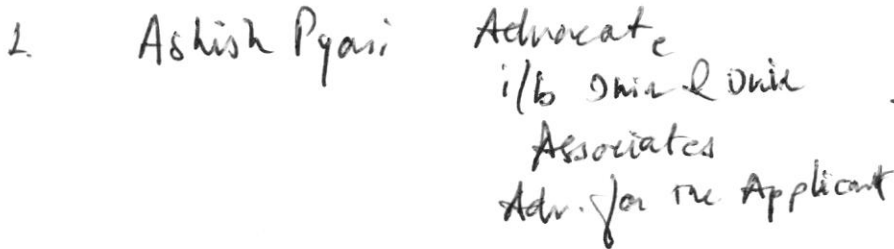 1. Ashish Pyasi Advocate
i/b Dhir & Dhir
Associates
Adv. for the Applicant